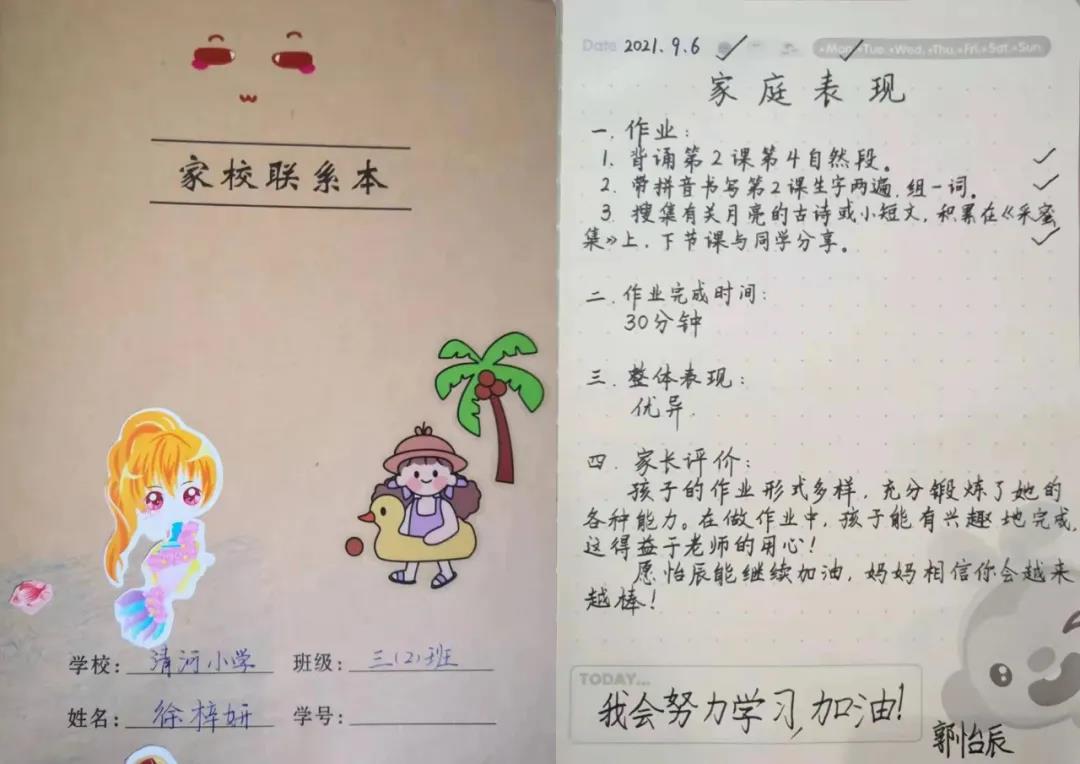 家校联系本
学校：清河小学 班级：三(2)班
姓名：徐梓妍 学号：
Date 2021.9.6 Mon. Tue. Wed. Thu. Fri. Sat. Sun
家庭表现
一.作业：
1. 背诵第2课第4自然段。
2. 带拼音书写第2课生字两遍.组一词。
3. 搜集有关月亮的古诗或小短文，积累在《采蜜
集》上，下节课与同学分享。
二.作业完成时间：
30分钟
三.整体表现：
优异.
四.家长评价：
孩子的作业形式多样，充分锻炼了她的
各种能力。在做作业中，孩子能有兴趣地完成，
这得益于老师的用心！
愿怡辰能继续加油，妈妈相信你会越来
越棒！
TODAY...
我会努力学习，加油！
郭怡辰